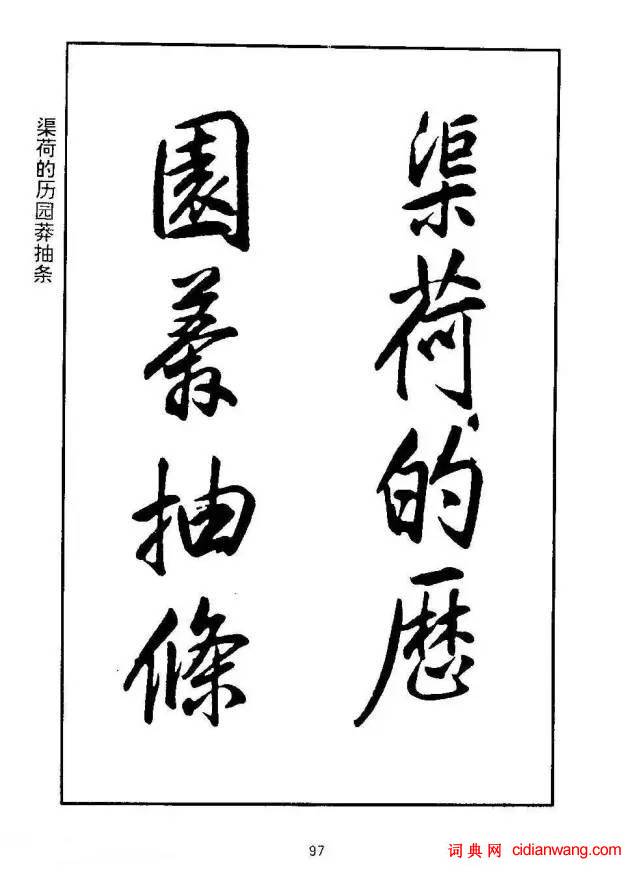 渠荷的歷
園莽抽條
渠荷的历园莽抽条
97
词典网 cidianwang.com